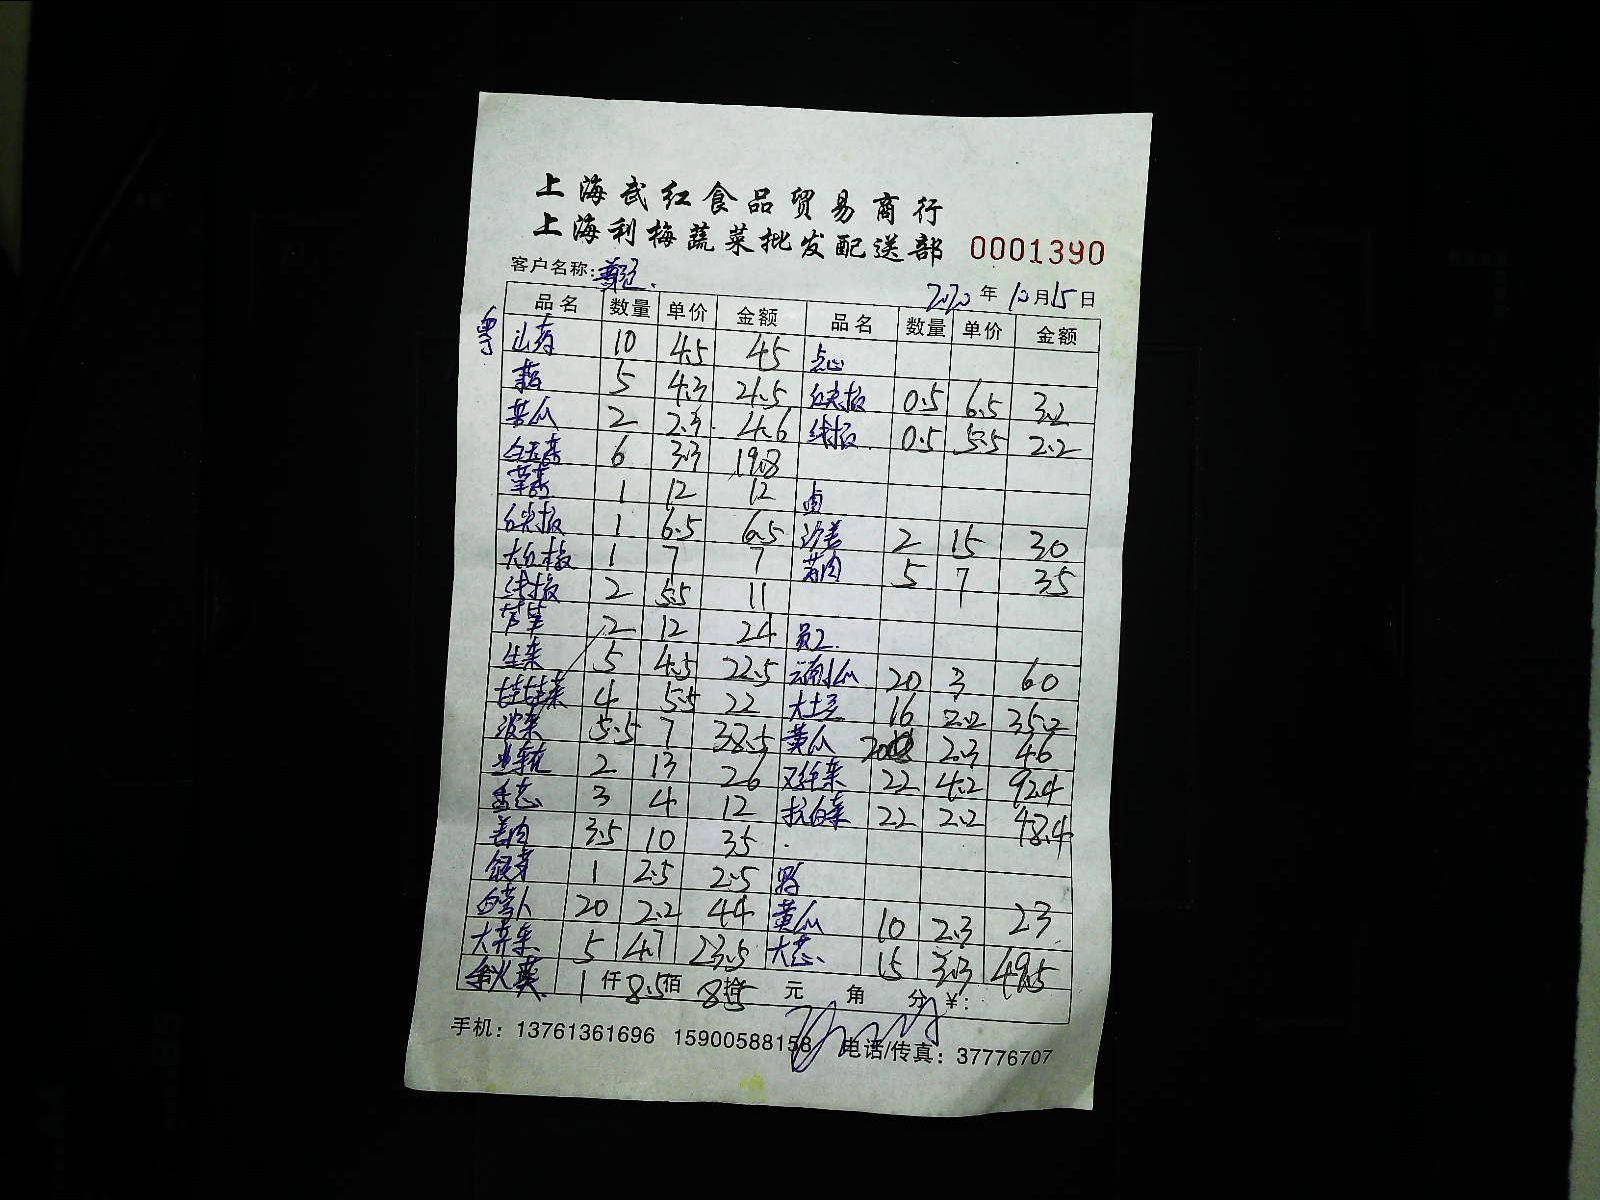 上海武红食品贸易商行
上海利梅蔬菜批发配送部 0001390
客户名称:
2020年10月15日
品名 数量 单价 金额 品名 数量 单价 金额
山药 10 4.5 45 点心
5 4.3 21.5 红尖椒 0.5 6.5 3.2
苦瓜 2 2.3 4.6 线椒 0.5 5.5 2.2
6 3.3 19.8
1 12 12 卤
红尖椒 1 6.5 6.5 沙姜 2 15 30
大红椒 1 7 7 姜肉 5 7 35
线椒 2 5.5 11
芦笋 2 12 24 员工
生菜 5 4.5 22.5 云南小瓜 20 3 60
娃娃菜 4 5.5 22 大土豆 16 2.2 35.2
菠菜 5.5 7 38.5 黄瓜 20 2.3 46
2 13 26 22 4.2 92.4
香芯 3 4 12 杭白菜 22 2.2 48.4
姜肉 3.5 10 35
银芽 1 2.5 2.5
白萝卜 20 2.2 44 黄瓜 10 2.3 23
大芥菜 5 4.7 23.5 大芯 15 3.3 49.5
1 仟 8.5 佰 8.5 拾 元 角 分 ¥:
手机: 13761361696 15900588158 电话/传真: 37776707